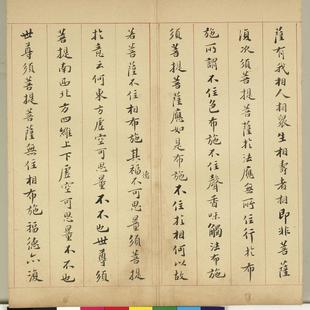 薩有我相人相衆生相壽者相即非菩薩
復次須菩提菩薩於法應無所住行於布
施所謂不住色布施不住聲香味觸法布施
須菩提菩薩應如是布施不住於相何以故
若菩薩不住相布施其福德不可思量須菩提
於意云何東方虛空可思量不不也世尊須
菩提南西北方四維上下虛空可思量不不也
世尊須菩提菩薩無住相布施福德亦復